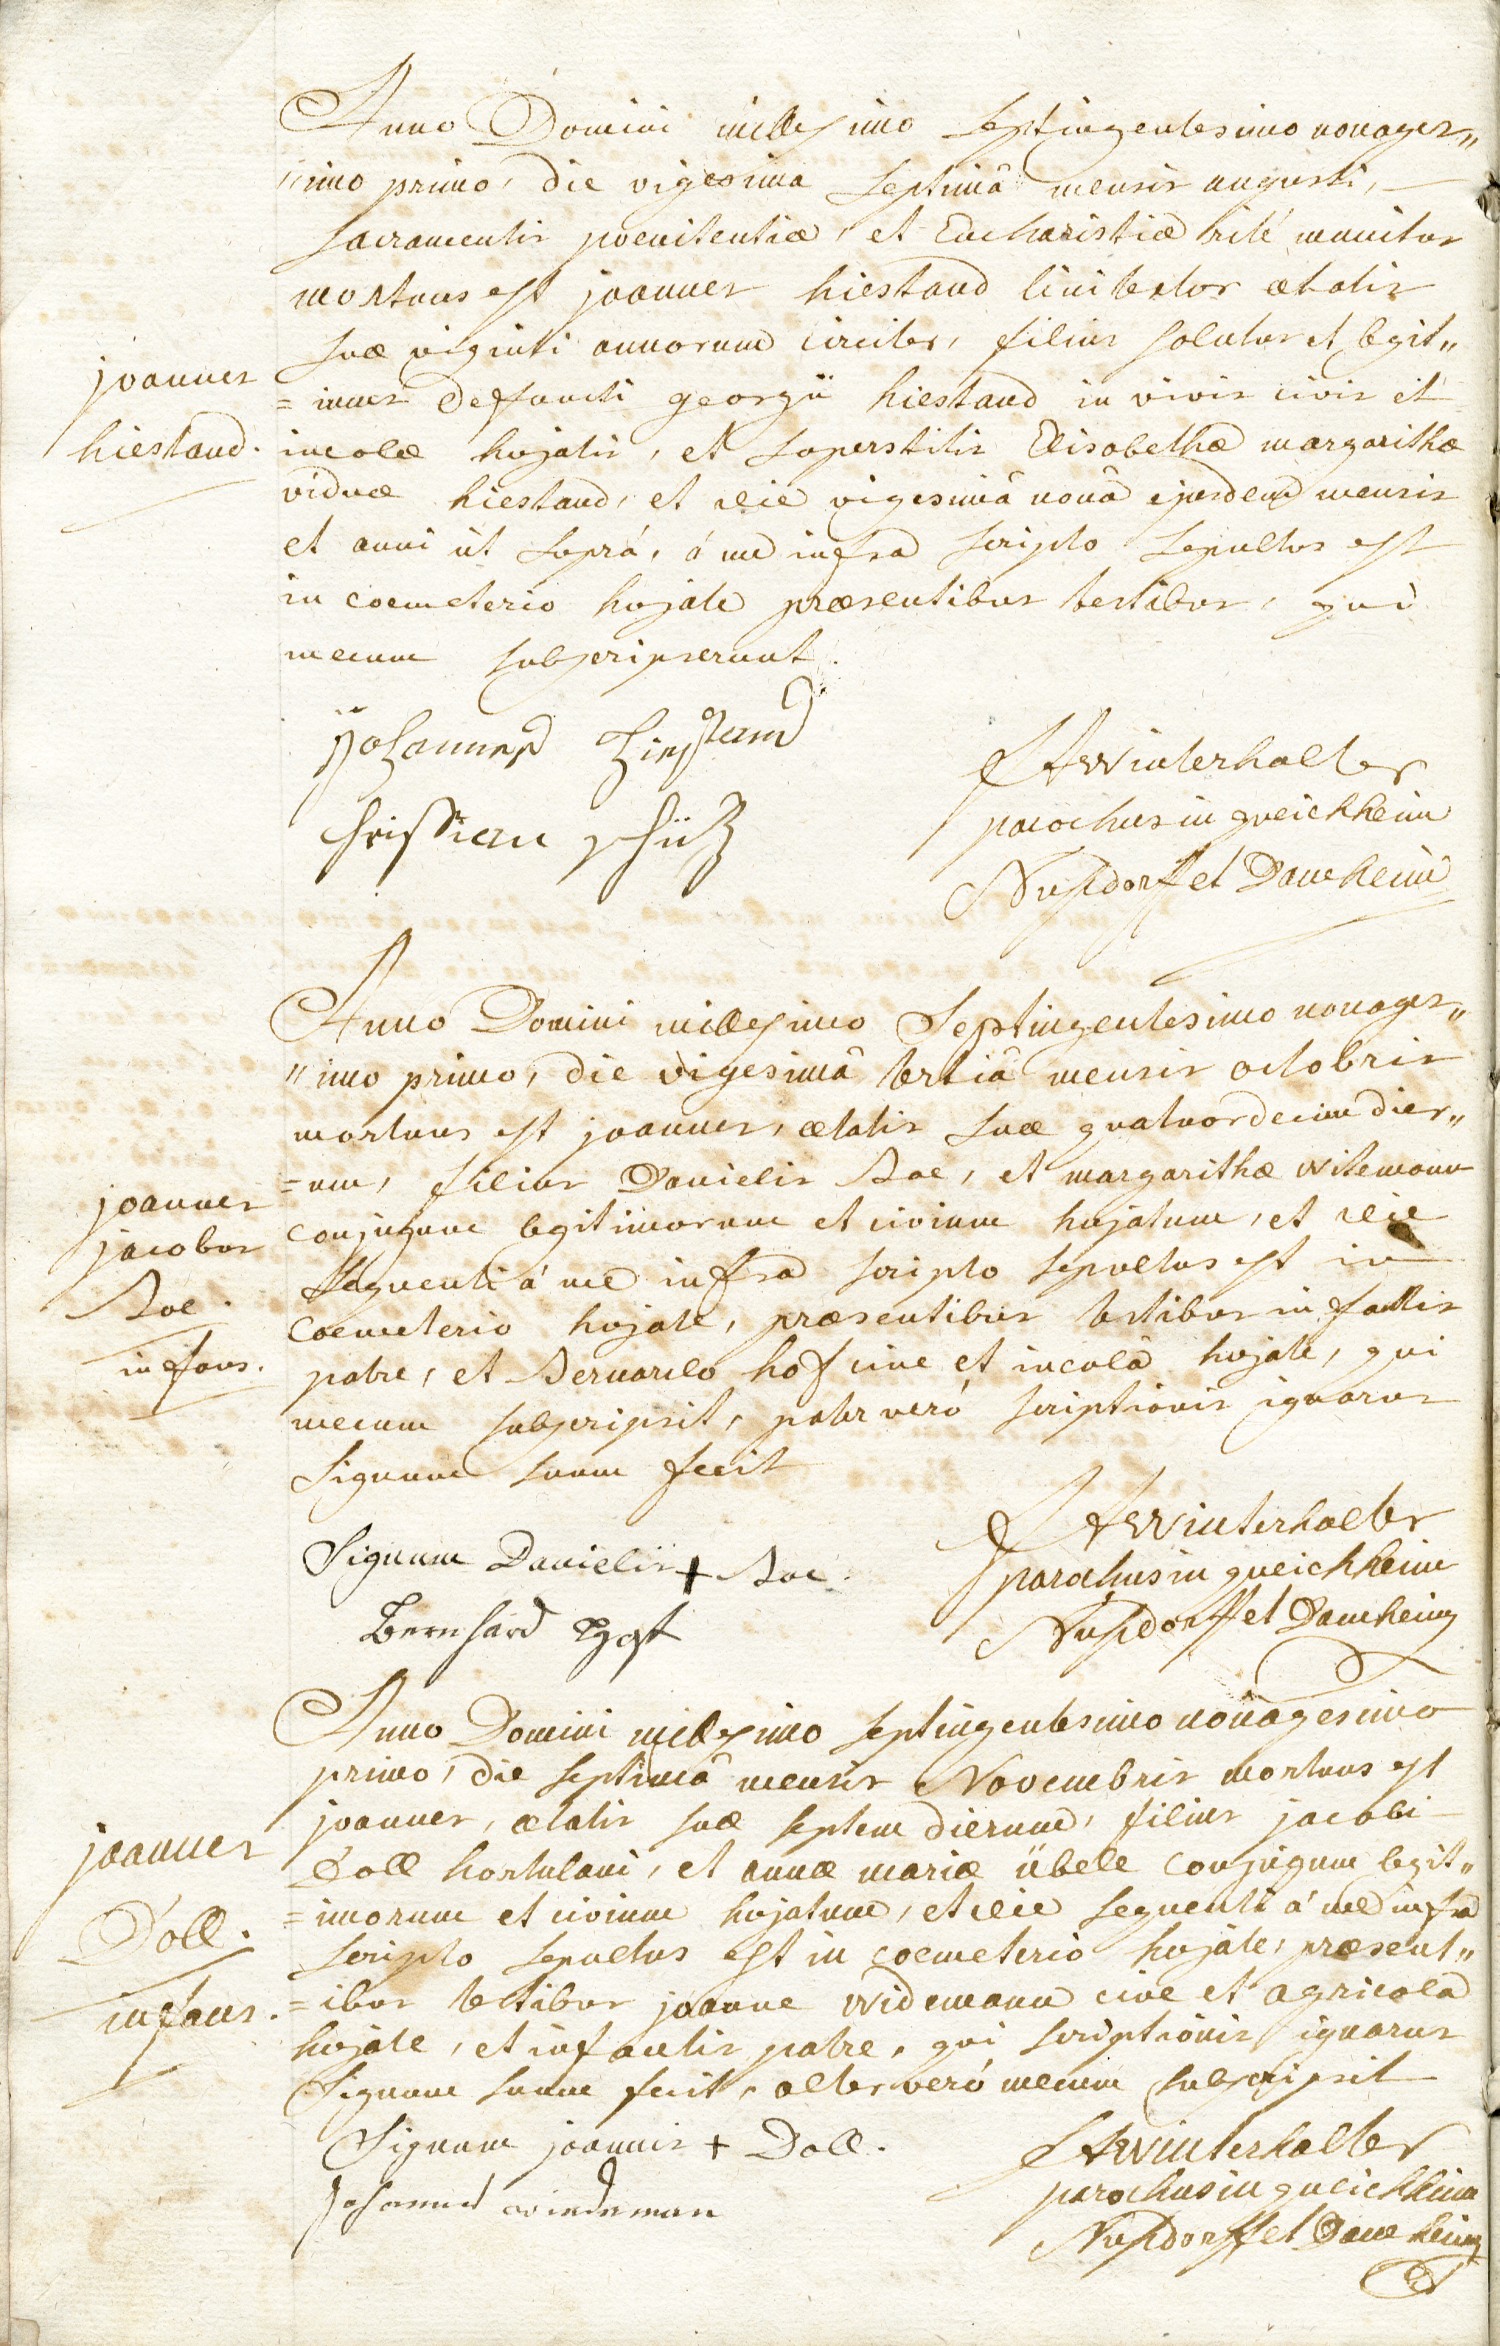 Anno Domini millesimo septingentesimo nonages„
„imo primo, die vigesima septimâ mensis augusti,
sacramentis poenitentiæ, et Eucharistiæ rité munitus
mortuus est joannes hiestand linitextor ætatis
suæ viginti annorum circiter, filius solutus et legit„
joannes
= imus defuncti georgii hiestand in vivis civis et
hiestand.
incolæ hujatis, et superstitis Elisabethæ margarithæ
viduæ hiestand, et die vigesimâ nonâ ejusdem mensis
et anni út suprá, á me infra scripto sepultus est
in coemeterio hujate præsentibus testibus, qui
mecum subscripserunt.
Johannes Hiestand
Christian Schütz
FAWinterhalter
parochus in queichheim
Nußdorf et Damheim
Anno Domini millesimo Septingentesimo nonages„
„imo primo, die vigesimâ tertiâ mensis octobris
mortuus est joannes, ætatis suæ quatuordecim dier„
= um, filius Danielis , et margarithæ witemann
joannes
conjugum legitimorum et civium hujatum, et die
jacobus
sequenti á me infra scripto sepultus est in
coemeterio hujate, præsentibus testibus infantis
infans.
patre, et Bernardo hof cive et incolâ hujate, qui
mecum subscripsit, pater veró scriptionis ignarus
Signum suum fecit
Signum Danielis +
Bernhard Hof
FAWinterhalter
parochus in queichheim
Nußdorff et Damheim
Anno Domini millesimo septingentesimo nonagesimo
primo, die septimâ mensis Novembris mortuus est
joannes, ætatis suæ septem dierum, filius jacobi
joannes
Doll hortulani, et annæ mariæ übele conjugum legit„
Doll.
= imorum et civium hujatum, et die sequenti á me infra
scripto sepultus est in coemeterio hujate, præsent„
infans.
= ibus testibus joanne widemann cive et agricolâ
hujate, et infantis patre, qui scriptionis ignarus
Signum suum fecit, alter veró mecum subscripsit
Signum joannis + Doll.
Johannes wiedeman
FAWinterhalter
parochus in queichheim
Nußdorff et Damheim